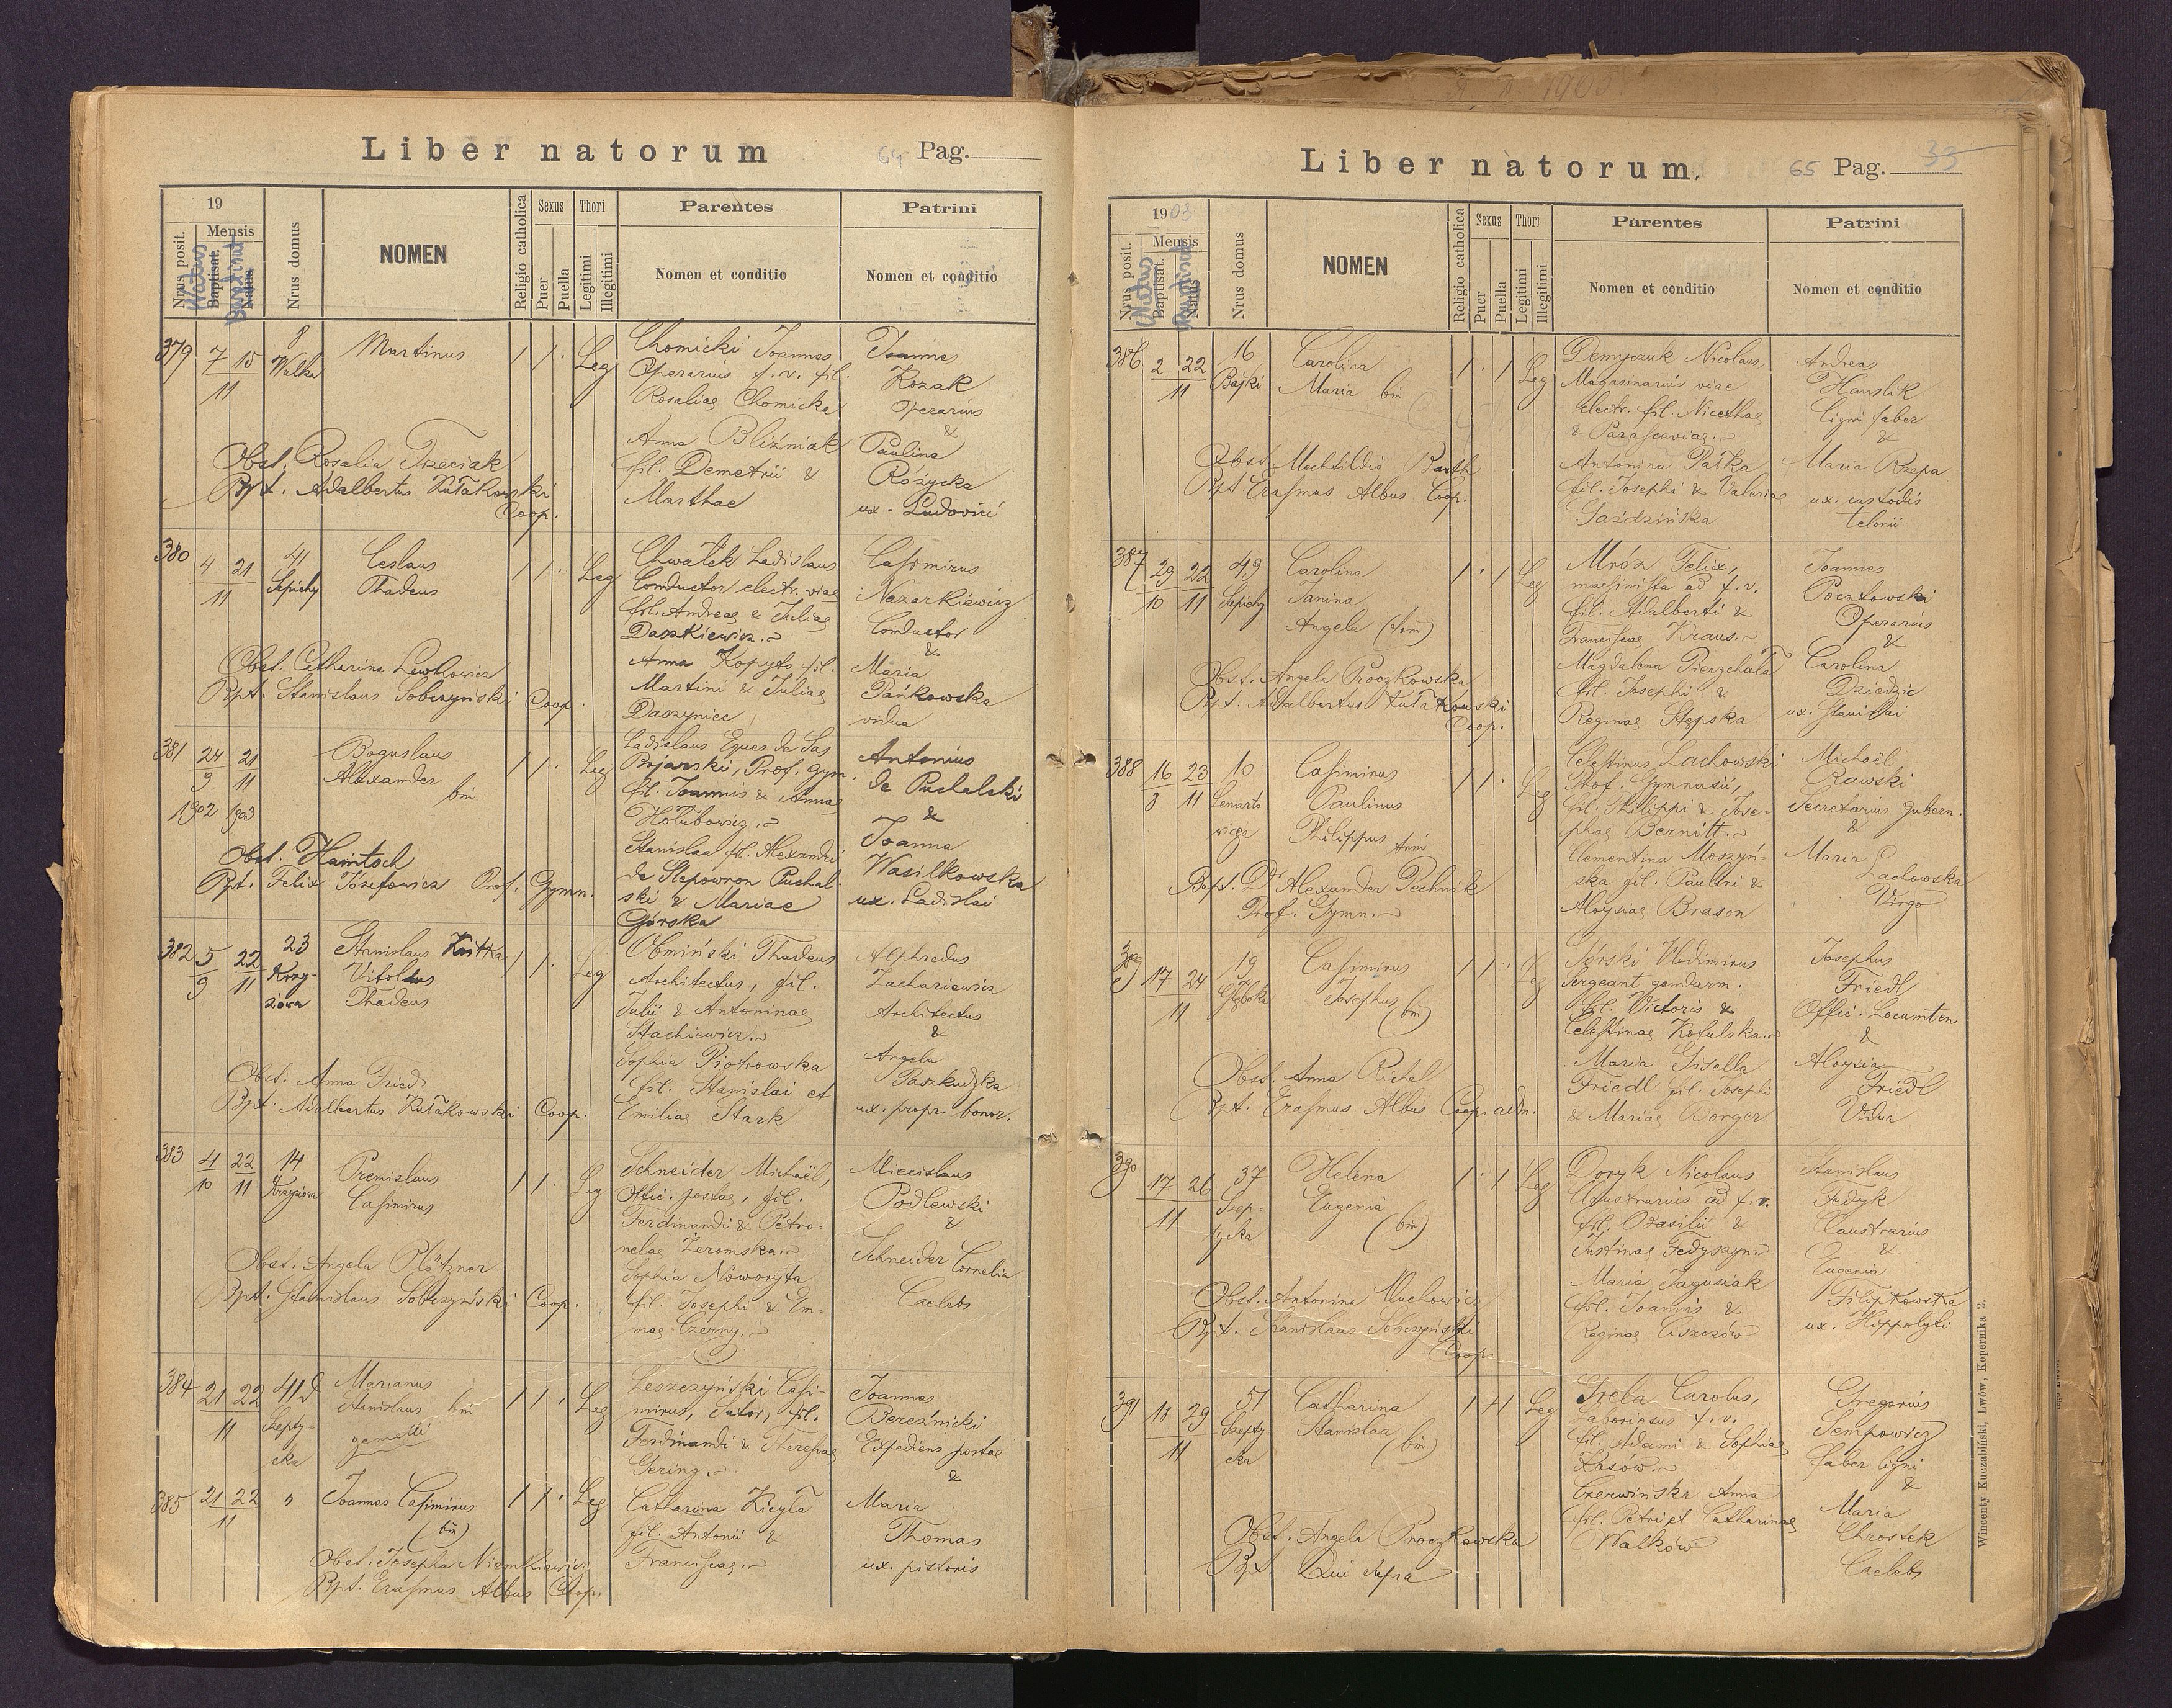 Liber natorum
64 Pag.
19
Nrus posit.
Mensis
Natus
Baptisat.
Baptisat
Natus
Nrus domus
NOMEN
Religio catholica
Sexus
Puer
Puella
Thori
Legitimi
Illegitimi
Parentes
Nomen et conditio
Patrini
Nomen et conditio
379 7 15 8 Martinus 1 1 Leg
11 Wulka
Chomicki Joannes
Operarius f. v. fil.
Rosaliae Chomicka
Anna Bliźniak
fil. Demetrii &
Marthae
Joannes
Kozak
Operarius
&
Paulina
Różycka
ux. Ludovici
Obst. Rosalia Trzeciak
Bpt. Adalbertus Kułakowski
Coop.
380 4 21 41 Ceslaus 1 1 Leg
11 Sapiehy Thadeus
Chwałek Ladislaus
Conductor electr. viae
fil. Andreae & Juliae
Daszkiewicz.
Anna Kopyto fil.
Martini & Juliae
Daszyniec
Casimirus
Nazarkiewicz
Conductor
&
Maria
Pańkowska
vidua
Obst. Catharina Lewkowicz
Bpt. Stanislaus Sobczyński Coop.
381 24 21 Boguslaus 1 1 Leg
9 11 Alexander
1902 1903 bin
Ladislaus Eques de Sas
Bojarski, Prof. gym.
fil. Joannis & Annae
Hołubowicz.
Stanislaa fil. Alexandri
de Slepowron Puchal-
ski & Mariae
Górska
Antonius
de Puchalski
&
Joanna
Wasilkowska
ux. Ladislai
Obst. Hamtsch
Bpt. Felix Józefowicz Prof. Gymn.
382 5 22 23 Stanislaus Kostka 1 1 Leg
9 11 Krzy- Vitoldus
żowa Thadeus
Obmiński Thadeus
Architectus, fil.
Julii & Antoninae
Stachiewicz.
Sophia Piotrowska
fil. Stanislai et
Emiliae Stark
Alphredus
Zachariewicz
Architectus
&
Angela
Paszkudzka
ux. propr. bonor.
Obst. Anna Fried
Bpt. Adalbertus Kułakowski Coop.
383 4 22 14 Premislaus 1 1 Leg
10 11 Krzyżowa Casimirus
Schneider Michaël,
Offic. postae, fil.
Ferdinandi & Petro-
nelae Żeromska.
Sophia Noworyta
fil. Josephi & Em-
mae Czerny.
Miecislaus
Podlewski
&
Schneider Cornelia
Caelebs
Obst. Angela Plötzner
Bpt. Stanislaus Sobczyński Coop.
384 21 22 41 Marianus 1 1 Leg
11 Szepty- Stanislaus bin
cka gemelli
Leszczyński Casi-
mirus, Sutor, fil.
Ferdinandi & Theresiae
Gering.
Joannes
Bereżnicki
Expediens postae
&
385 21 22 " Joannes Casimirus 1 1 Leg
11 (bin)
Catharina Kieyła
fil. Antonii &
Franciscae.
Maria
Thomas
ux. pistoris
Obst. Josepha Niemkiewicz
Bpt. Erasmus Albus Coop.
Liber natorum.
65 Pag. 33
1903
Nrus posit.
Mensis
Natus
Baptisat.
Baptisat
Natus
Nrus domus
NOMEN
Religio catholica
Sexus
Puer
Puella
Thori
Legitimi
Illegitimi
Parentes
Nomen et conditio
Patrini
Nomen et conditio
386 2 22 16 Carolina 1 1 Leg
11 Bajki Maria bin
Demyczuk Nicolaus
Magasinarius viae
electr. fil. Nicethae
& Parasceviae.
Antonina Pałka
fil. Josephi & Valeriae
Gaździńska
Andreas
Hauslik
ligni faber
&
Maria Rzepa
ux. custodis
telonii
Obst. Mechtildis Barth
Bpt. Erasmus Albus Coop.
387 29 22 49 Carolina 1 1 Leg
10 11 Sapiehy Janina
Angela (trin)
Mróz Felix,
machinista ad f. v.
fil. Adalberti &
Franciscae Kraus.
Magdalena Pierzchała
fil. Josephi &
Reginae Stępska
Joannes
Pocztowski
Operarius
&
Carolina
Dziedzic
ux. Stanislai
Obst. Angela Proczkowska
Bpt. Adalbertus Kułakowski
Coop.
388 16 23 10 Casimirus 1 1 Leg
3 11 Lenarto Paulinus
wicza Philippus trin
Celestinus Lachowski
Prof. Gymnasii,
fil. Philippi & Jose-
phae Bernitt.
Clementina Moszyń-
ska fil. Paulini &
Aloysiae Brason
Michaël
Rawski
Secretarius gubern.
&
Maria
Lachowska
Virgo
Bapt. Dr Alexander Pechnik
Prof. Gymn.
389 17 24 19 Casimirus 1 1 Leg
11 Głęboka Josephus
(bin)
Górski Vladimirus
Sergeant gendarm.
fil. Victoris &
Celestinae Kotulska.
Maria Gisella
Friedl fil. Josephi
& Mariae Borger
Josephus
Friedl
Offic. Locumten.
&
Aloysia
Friedl
Vidua
Obst. Anna Richel
Bpt. Erasmus Albus Coop. adm.
390 17 26 37 Helena 1 1 Leg
11 Szep- Eugenia
tycka (bin)
Doryk Nicolaus
Claustrarius ad f. v.
fil. Basilii &
Justinae Fedyszyn.
Maria Jagusiak
fil. Joannis &
Reginae Ciszczów
Stanislaus
Fedyk
Claustrarius
&
Eugenia
Filipkowska
ux. Hippolyti
Obst. Antonina Muchowicz
Bpt. Stanislaus Sobczyński
Coop.
391 18 29 51 Catharina 1 1 Leg
11 Szepty Stanislaa
cka (bin)
Grela Carolus,
Laboriosus f. v.
fil. Adami & Sophiae
Krasów.
Czerwińska Anna
fil. Petri et Catharinae
Walków
Gregorius
Sempowicz
faber ligni
&
Maria
Chrostek
Caelebs
Obst. Angela Proczkowska
Bpt. Qui supra
Wincenty Kuczabiński, Lwów, Kopernika 2.